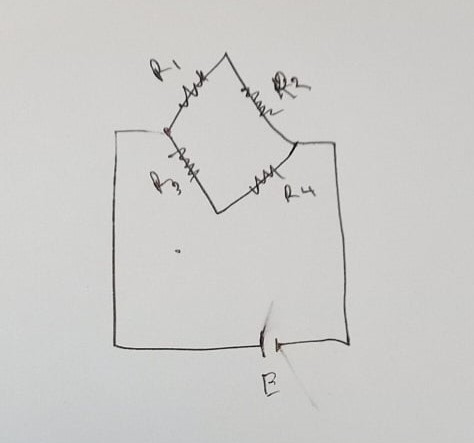 R1
R2
R3
R4
E